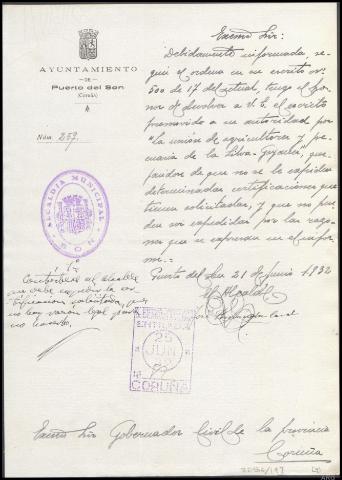 AYUNTAMIENTO
DE
Puerto del Son
(Coruña)
Núm. 259.
Excmo Sr:
Debidamente informada, se-
gun el ordena en su escrito nº
500 de 17 del actual, tengo el ho-
nor de devolver a V.E. el escrito
promovido a su autoridad por
"La union de agricultores y pe-
cuaria de la Silva-", que-
jandose de que no se le expidan
determinadas certificaciones que
tienen solicitadas, y que no pue-
den ser expedidas por las razo-
nes que se expresan en el infor-
me.-
Puerto del Son 21 de junio 1932
El Alcalde
ALCALDIA MUNICIPAL
SON
1º
Contestese al alcalde
que debe expedir la cer-
tificacion solicitada, pues
no hay razon legal para
no hacerlo.
ENTRADA
25
JUN
CORUÑA
Excmo Sr Gobernador Civil de la provincia
Coruña